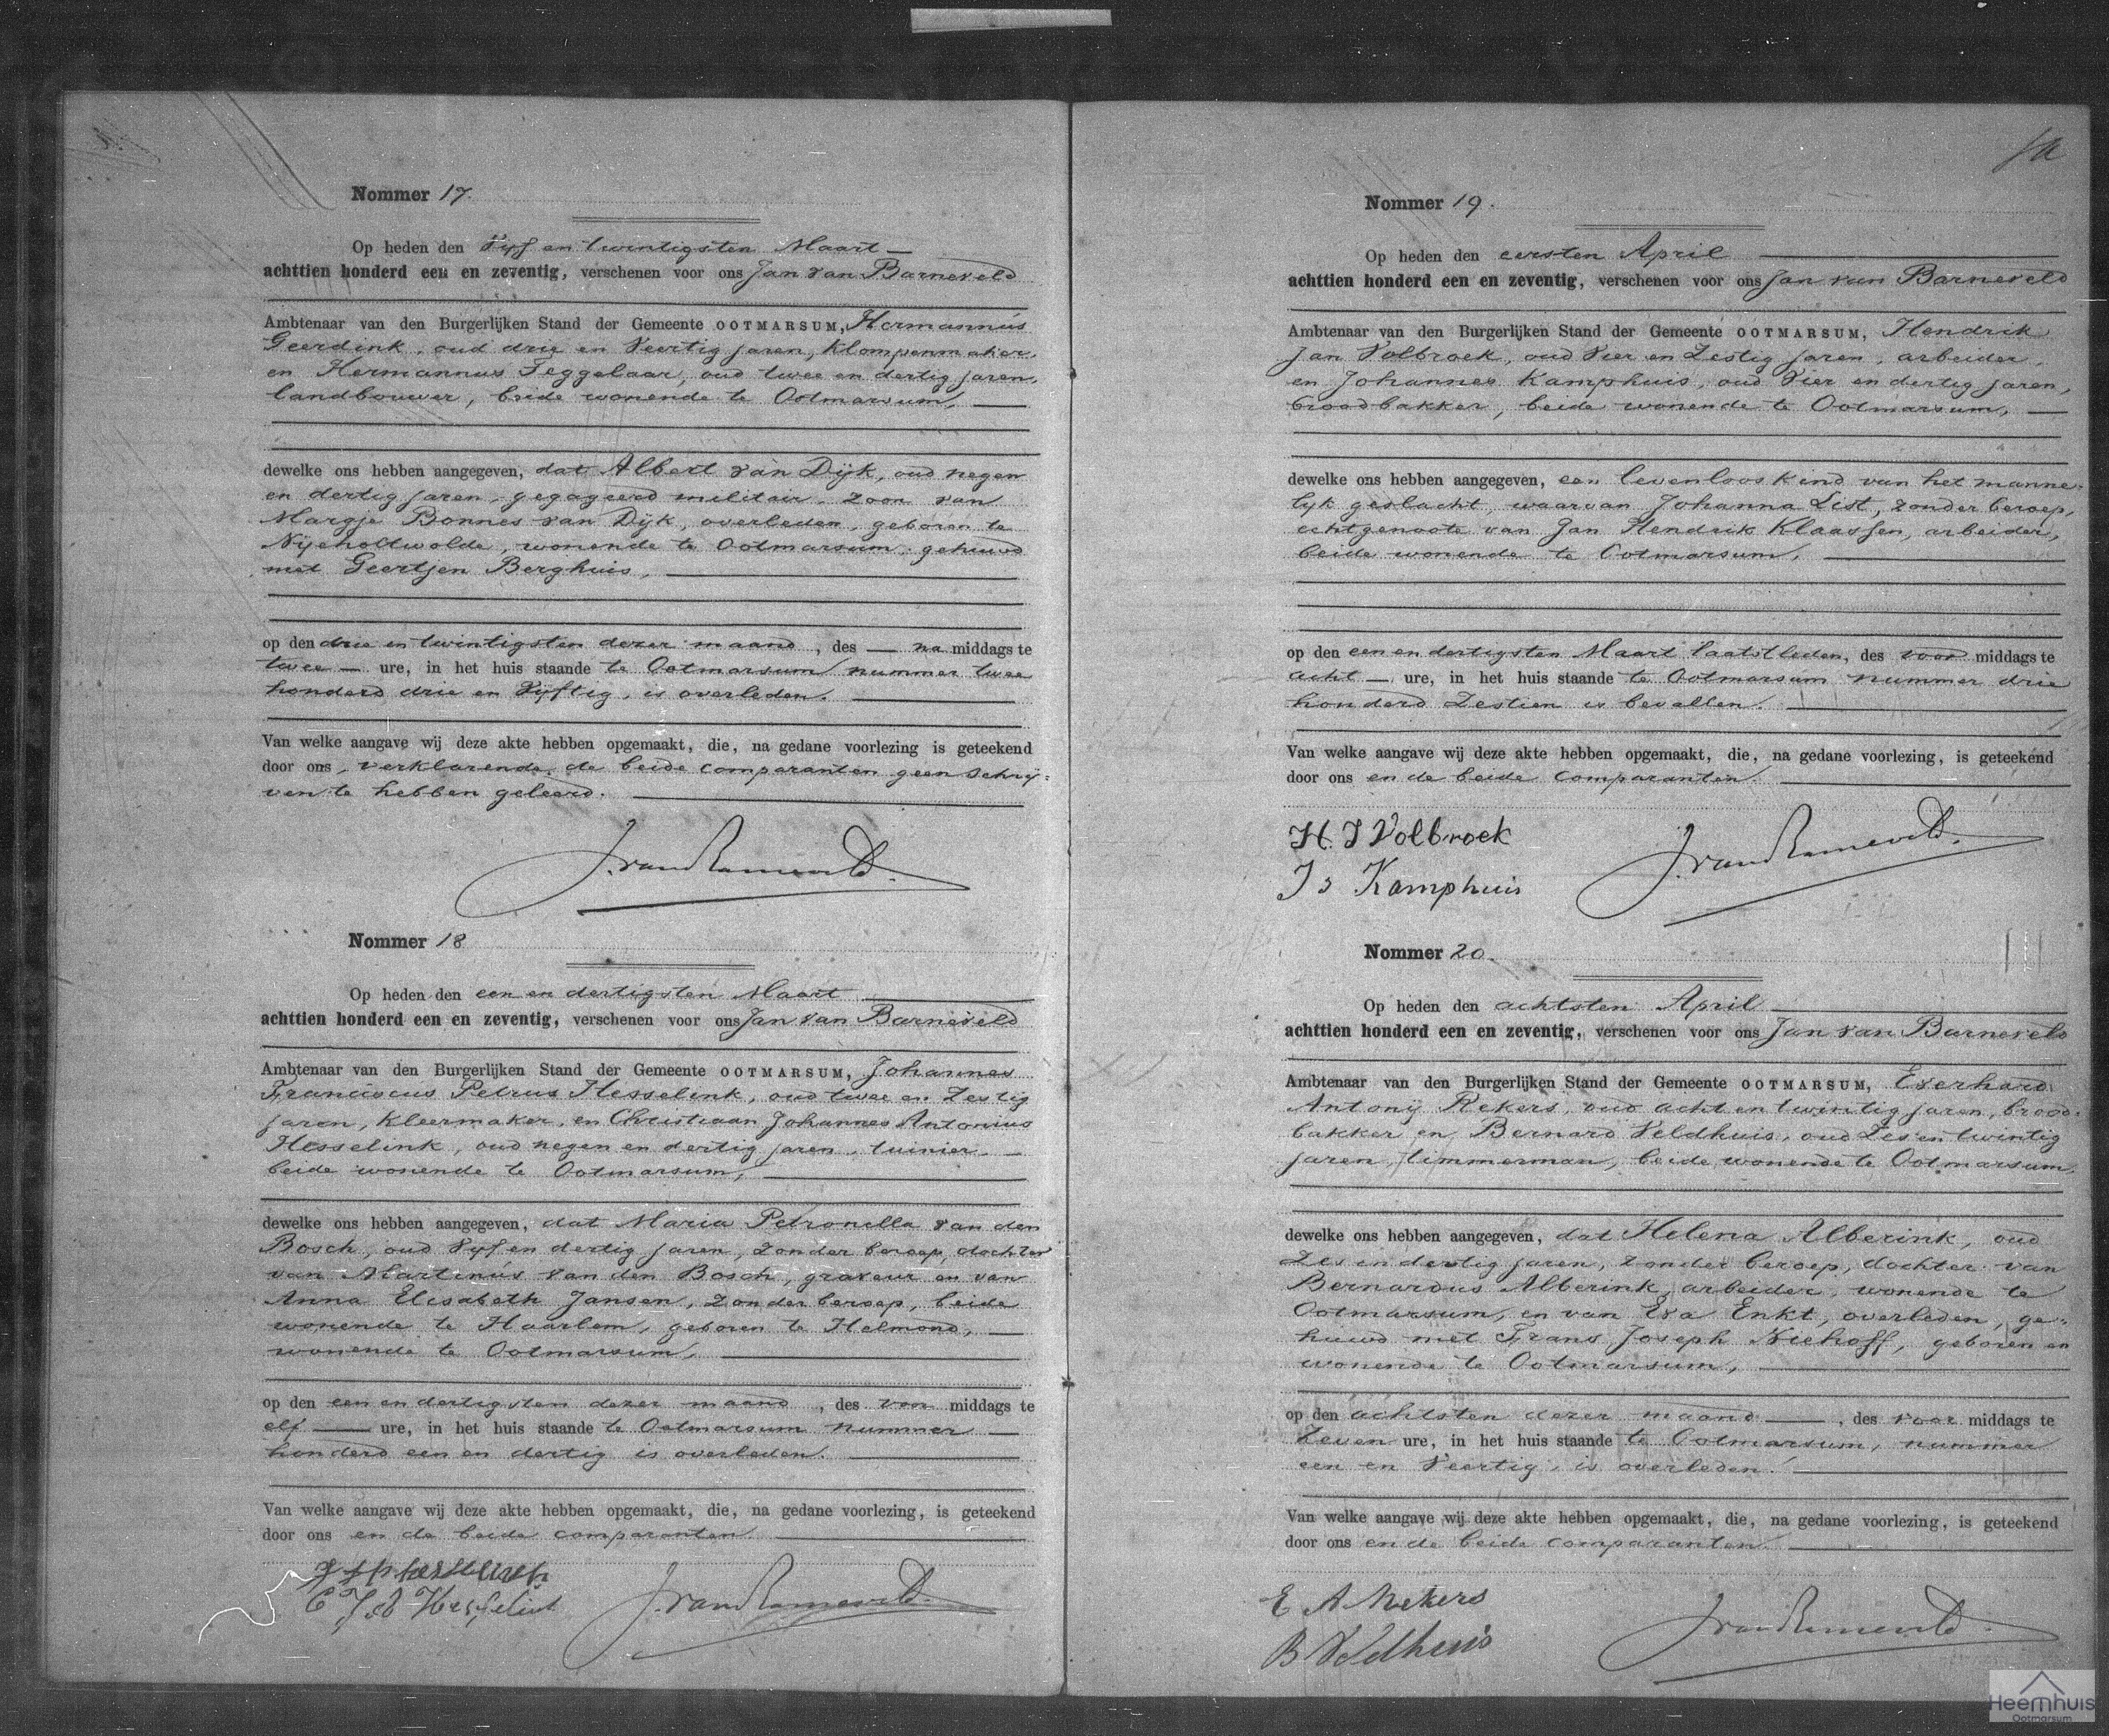 Nommer 17.
Op heden den Vyf en twintigsten Maart
achttien honderd een en zeventig, verschenen voor ons Jan van Barneveld
Ambtenaar van den Burgerlijken Stand der Gemeente OOTMARSUM, Hermannus
Geerdink, oud drie en Veertig jaren, Klompenmaker,
en Hermannus Teggelaar, oud twee en dertig jaren,
landbouwer, beide wonende te Ootmarsum,
dewelke ons hebben aangegeven, dat Albert van Dijk, oud negen
en dertig jaren, gegageerd militair, zoon van
Margje Bonnes van Dijk, overleden, geboren te
Nijeholtwolde, wonende te Ootmarsum, gehuwd
met Geertjen Berghuis,
op den drie en twintigsten dezer maand, des na middags te
twee ure, in het huis staande te Ootmarsum nummer twee
honderd drie en Vyftig, is overleden.
Van welke aangave wij deze akte hebben opgemaakt, die, na gedane voorlezing is geteekend
door ons, verklarende de beide comparanten geen schry=
ven te hebben geleerd.
J. van Barneveld.
Nommer 18
Op heden den een en dertigsten Maart
achttien honderd een en zeventig, verschenen voor ons Jan van Barneveld
Ambtenaar van den Burgerlijken Stand der Gemeente OOTMARSUM, Johannes
Franciscus Petrus Hesselink, oud twee en Zestig
jaren, Kleermaker, en Christiaan Johannes Antonius
Hesselink, oud negen en dertig jaren, tuinier,
beide wonende te Ootmarsum,
dewelke ons hebben aangegeven, dat Maria Petronella van den
Bosch, oud Vyf en dertig jaren, zonder beroep, dochter
van Martinus van den Bosch, graveur en van
Anna Elisabeth Jansen, zonder beroep, beide
wonende te Haarlem, geboren te Helmond,
wonende te Ootmarsum,
op den een en dertigsten dezer maand, des voor middags te
elf ure, in het huis staande te Ootmarsum nummer
honderd een en dertig is overleden.
Van welke aangave wij deze akte hebben opgemaakt, die, na gedane voorlezing, is geteekend
door ons en de beide comparanten
C J A Hesselink
J. van Barneveld.
Nommer 19.
Op heden den eersten April
achttien honderd een en zeventig, verschenen voor ons Jan van Barneveld
Ambtenaar van den Burgerlijken Stand der Gemeente OOTMARSUM, Hendrik
Jan Volbroek, oud Vier en Zestig jaren, arbeider,
en Johannes Kamphuis, oud Vier en dertig jaren,
broodbakker, beide wonende te Ootmarsum,
dewelke ons hebben aangegeven, een levenloos kind van het manne=
lyk geslacht, waarvan Johanna List, zonder beroep,
echtgenoote van Jan Hendrik Klaassen, arbeider,
beide wonende te Ootmarsum,
op den een en dertigsten Maart laatstleden, des voor middags te
acht ure, in het huis staande te Ootmarsum nummer drie
honderd Zestien is bevallen.
Van welke aangave wij deze akte hebben opgemaakt, die, na gedane voorlezing, is geteekend
door ons en de beide comparanten.
H. J Volbroek
Js Kamphuis
J. van Barneveld.
Nommer 20.
Op heden den achtsten April
achttien honderd een en zeventig, verschenen voor ons Jan van Barneveld
Ambtenaar van den Burgerlijken Stand der Gemeente OOTMARSUM, Everhard
Antonij Rekers, oud acht en twintig jaren, brood=
bakker en Bernard Veldhuis, oud Zes en twintig
jaren, timmerman, beide wonende te Ootmarsum,
dewelke ons hebben aangegeven, dat Helena Alberink, oud
Zes en dertig jaren, zonder beroep, dochter van
Bernardus Alberink, arbeider, wonende te
Ootmarsum, en van Eva Enkt, overleden, ge=
huwd met Frans Joseph Niehoff, geboren en
wonende te Ootmarsum,
op den achtsten dezer maand, des voor middags te
Zeven ure, in het huis staande te Ootmarsum, nummer
een en Veertig, is overleden.
Van welke aangave wij deze akte hebben opgemaakt, die, na gedane voorlezing, is geteekend
door ons en de beide comparanten.
E A Rekers
B Veldhuis
J van Barneveld.
Heemhuis
Ootmarsum